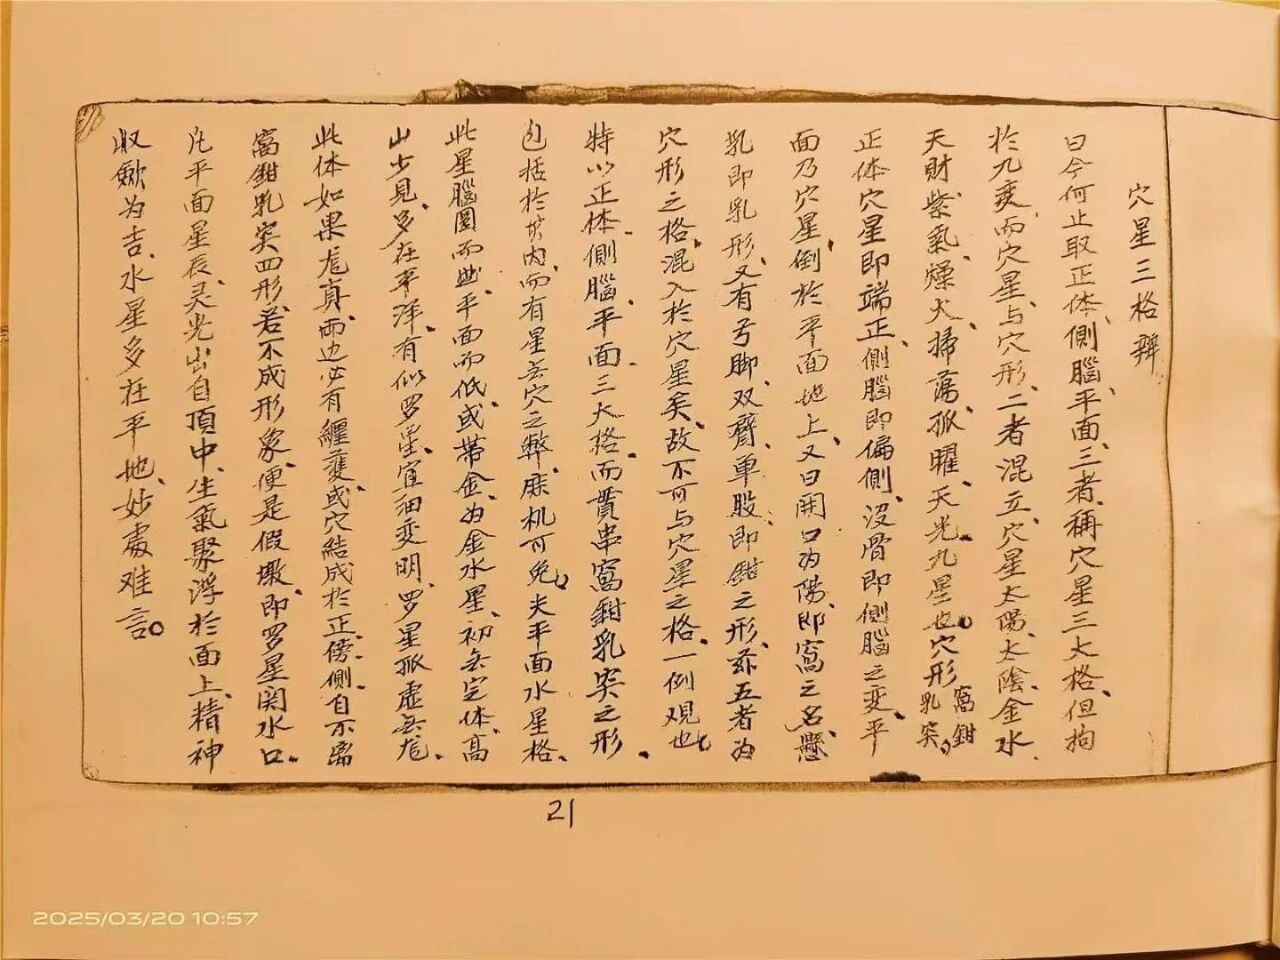 穴星三格辨
曰今何止取正体、側腦、平面、三者、稱穴星三大格、但拘
於九变、而穴星、与穴形、二者混立、穴星太陽、太陰、金水、
天財、紫氣、燥火、掃蕩、孤曜、天光、九星也。穴形窩鉗乳突、
正体穴星即端正、側腦即偏側、没骨即側腦之变、平
面乃穴星、倒於平面地上、又曰開口为陽、即窩之名、懸
乳即乳形、又有弓脚、双臂、单股、即鉗之形、茲五者为
穴形之格、混入於穴星矣、故不可与穴星之格、一例观也。
特以正体、側腦、平面、三大格、而貫串窩鉗乳突之形、
包括於其内、而有星无穴之弊、庶机可免。夫平面水星格、
此星腦圆而曲、平面而低、或带金、为金水星、初无定体、高
山少見、多在平洋、有似罗星、宜细变明、罗星孤虚无尨、
此体如果尨真、两边必有纏護、或穴結成於正、傍、側、自不离
窩鉗乳突四形、若不成形象、便是假墩、即罗星関水口、
凡平面星辰、灵光出自頂中、生氣聚浮於面上、精神
收歛为吉、水星多在平地、妙處难言。
21
2025/03/20 10:57